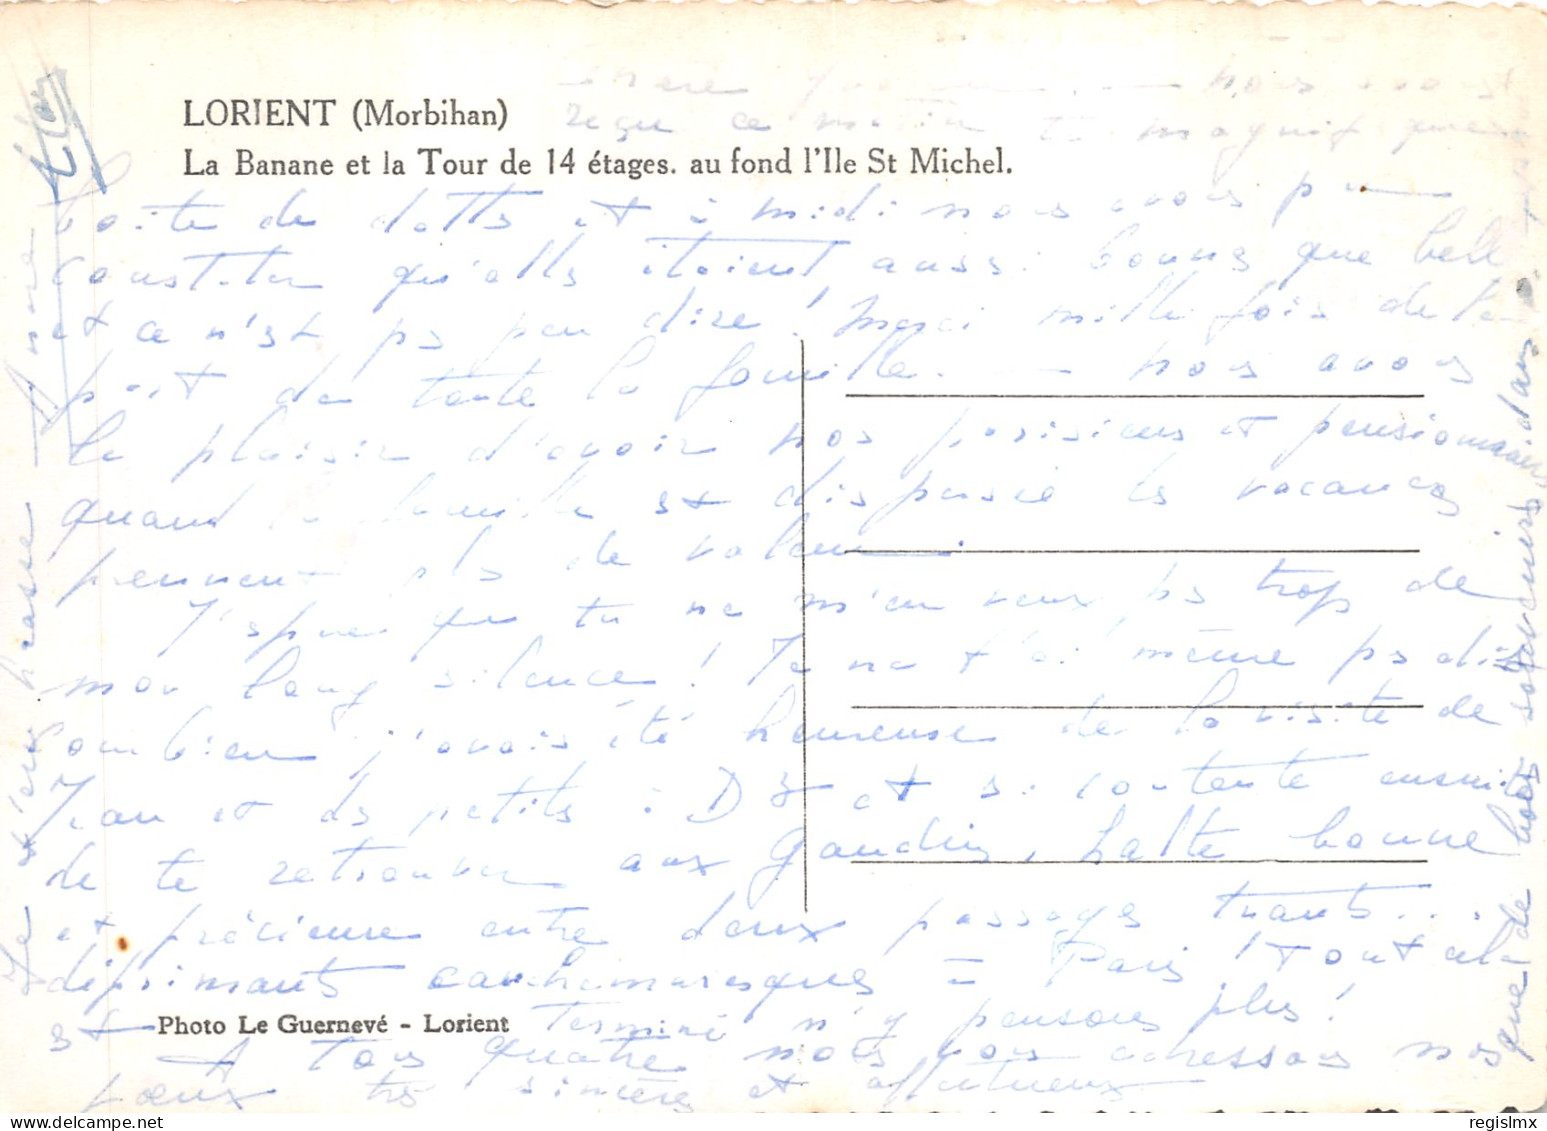 LORIENT (Morbihan)
La Banane et la Tour de 14 étages. au fond l'Ile St Michel.
nous avons
reçu ce matin ta magnifique
boîte de dattes et à midi nous avons pu
constater qu'elles étaient aussi bonnes que belles
et ce n'est pas peu dire! Merci mille fois de la
part de toute la famille. — Nous avons
le plaisir d'avoir nos parisiens et pensionnaires
quand la famille est dispersée les vacances
prennent plus de valeur.
J'espère que tu ne m'en veux pas trop de
mon long silence! Je ne t'ai même pas dit
combien j'avais été heureuse de la visite de
Jean et des petits à DZ et si contente ensuite
de te retrouver aux Gaudins, halte bonne
et précieuse entre deux passages
déprimants = Paris! Tout cela
est terminé n'y pensons plus!
Photo Le Guernevé - Lorient
A tous quatre nous vous adressons nos
vœux très sincères et affectueux
que de bons souvenirs, dans
Je t'embrasse
regislmx